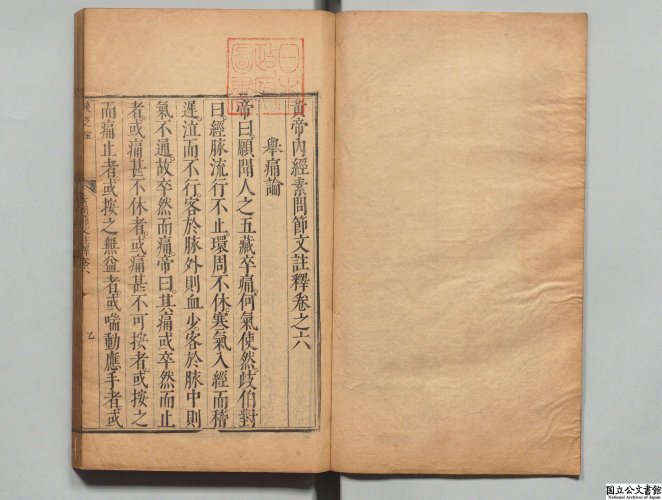 黃帝內經素問節文註釋卷之六
舉痛論
帝曰願聞人之五藏卒痛何氣使然歧伯對
曰經脉流行不止環周不休寒氣入經而稽
遲泣而不行客於脉外則血少客於脉中則
氣不通故卒然而痛帝曰其痛或卒然而止
者或痛甚不休者或痛甚不可按者或按之
而痛止者或按之無益者或喘動應手者或
乙
国立公文書館
National Archives of Japan